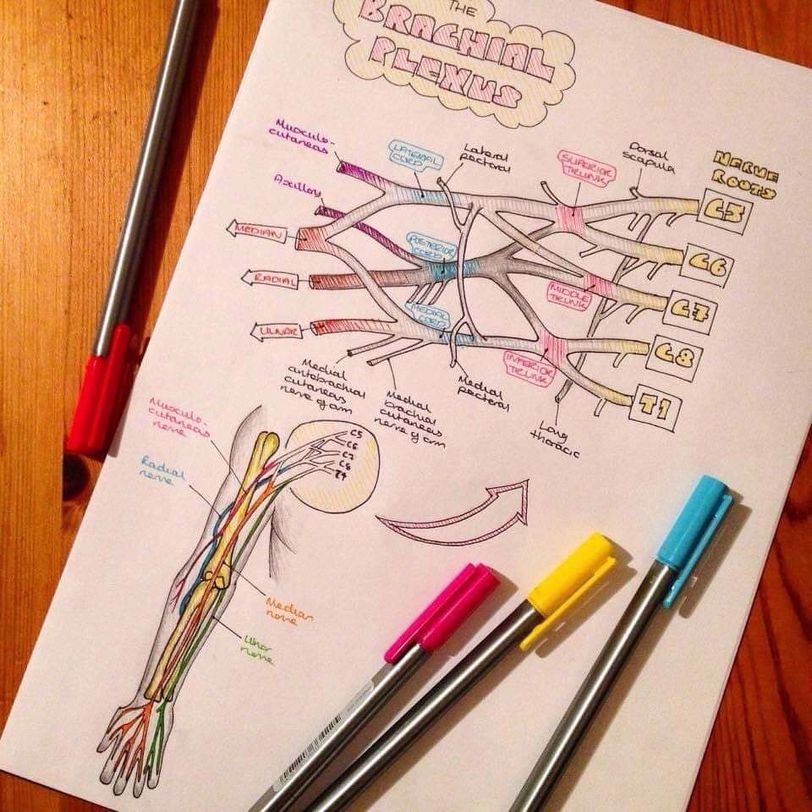 THE
BRACHIAL
PLEXUS
Musculo-
cutaneas
LATERAL
CORD
Lateral
pectoral
SUPERIOR
TRUNK
Dorsal
scapula
NERVE
ROOTS
C5
Axillary
MEDIAN
POSTERIOR
CORD
C6
RADIAL
MIDDLE
TRUNK
C7
ULNAR
MEDIAL
CORD
INFERIOR
TRUNK
C8
T1
Medial
antobrachial
cutaneas
nerve of arm
Medial
brachial
cutaneas
nerve of arm
Medial
pectoral
Long
thoracic
Musculo-
cutaneas
nerve
Radial
nerve
C5
C6
C7
C8
Median
nerve
Ulnar
nerve